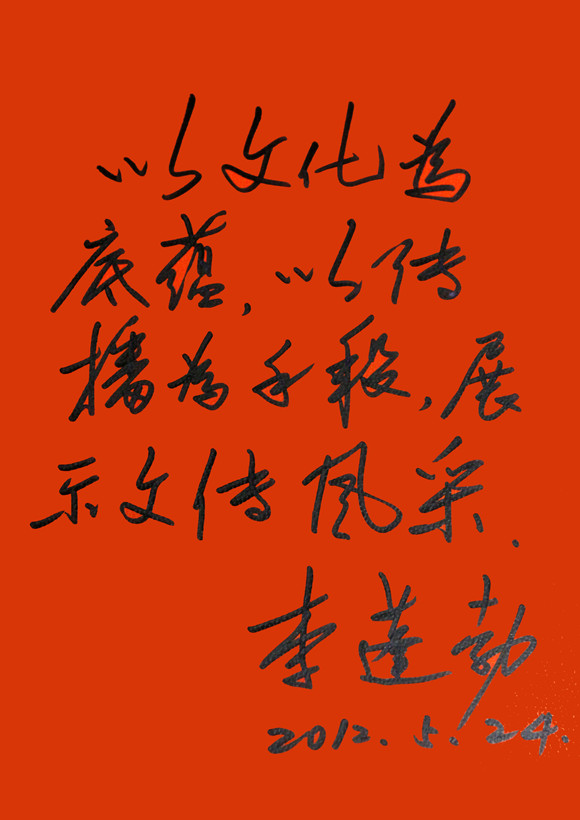 以文化為
底蕴,以传
播為手段,展
示文传风采.
李蓬勃
2012.5.24.